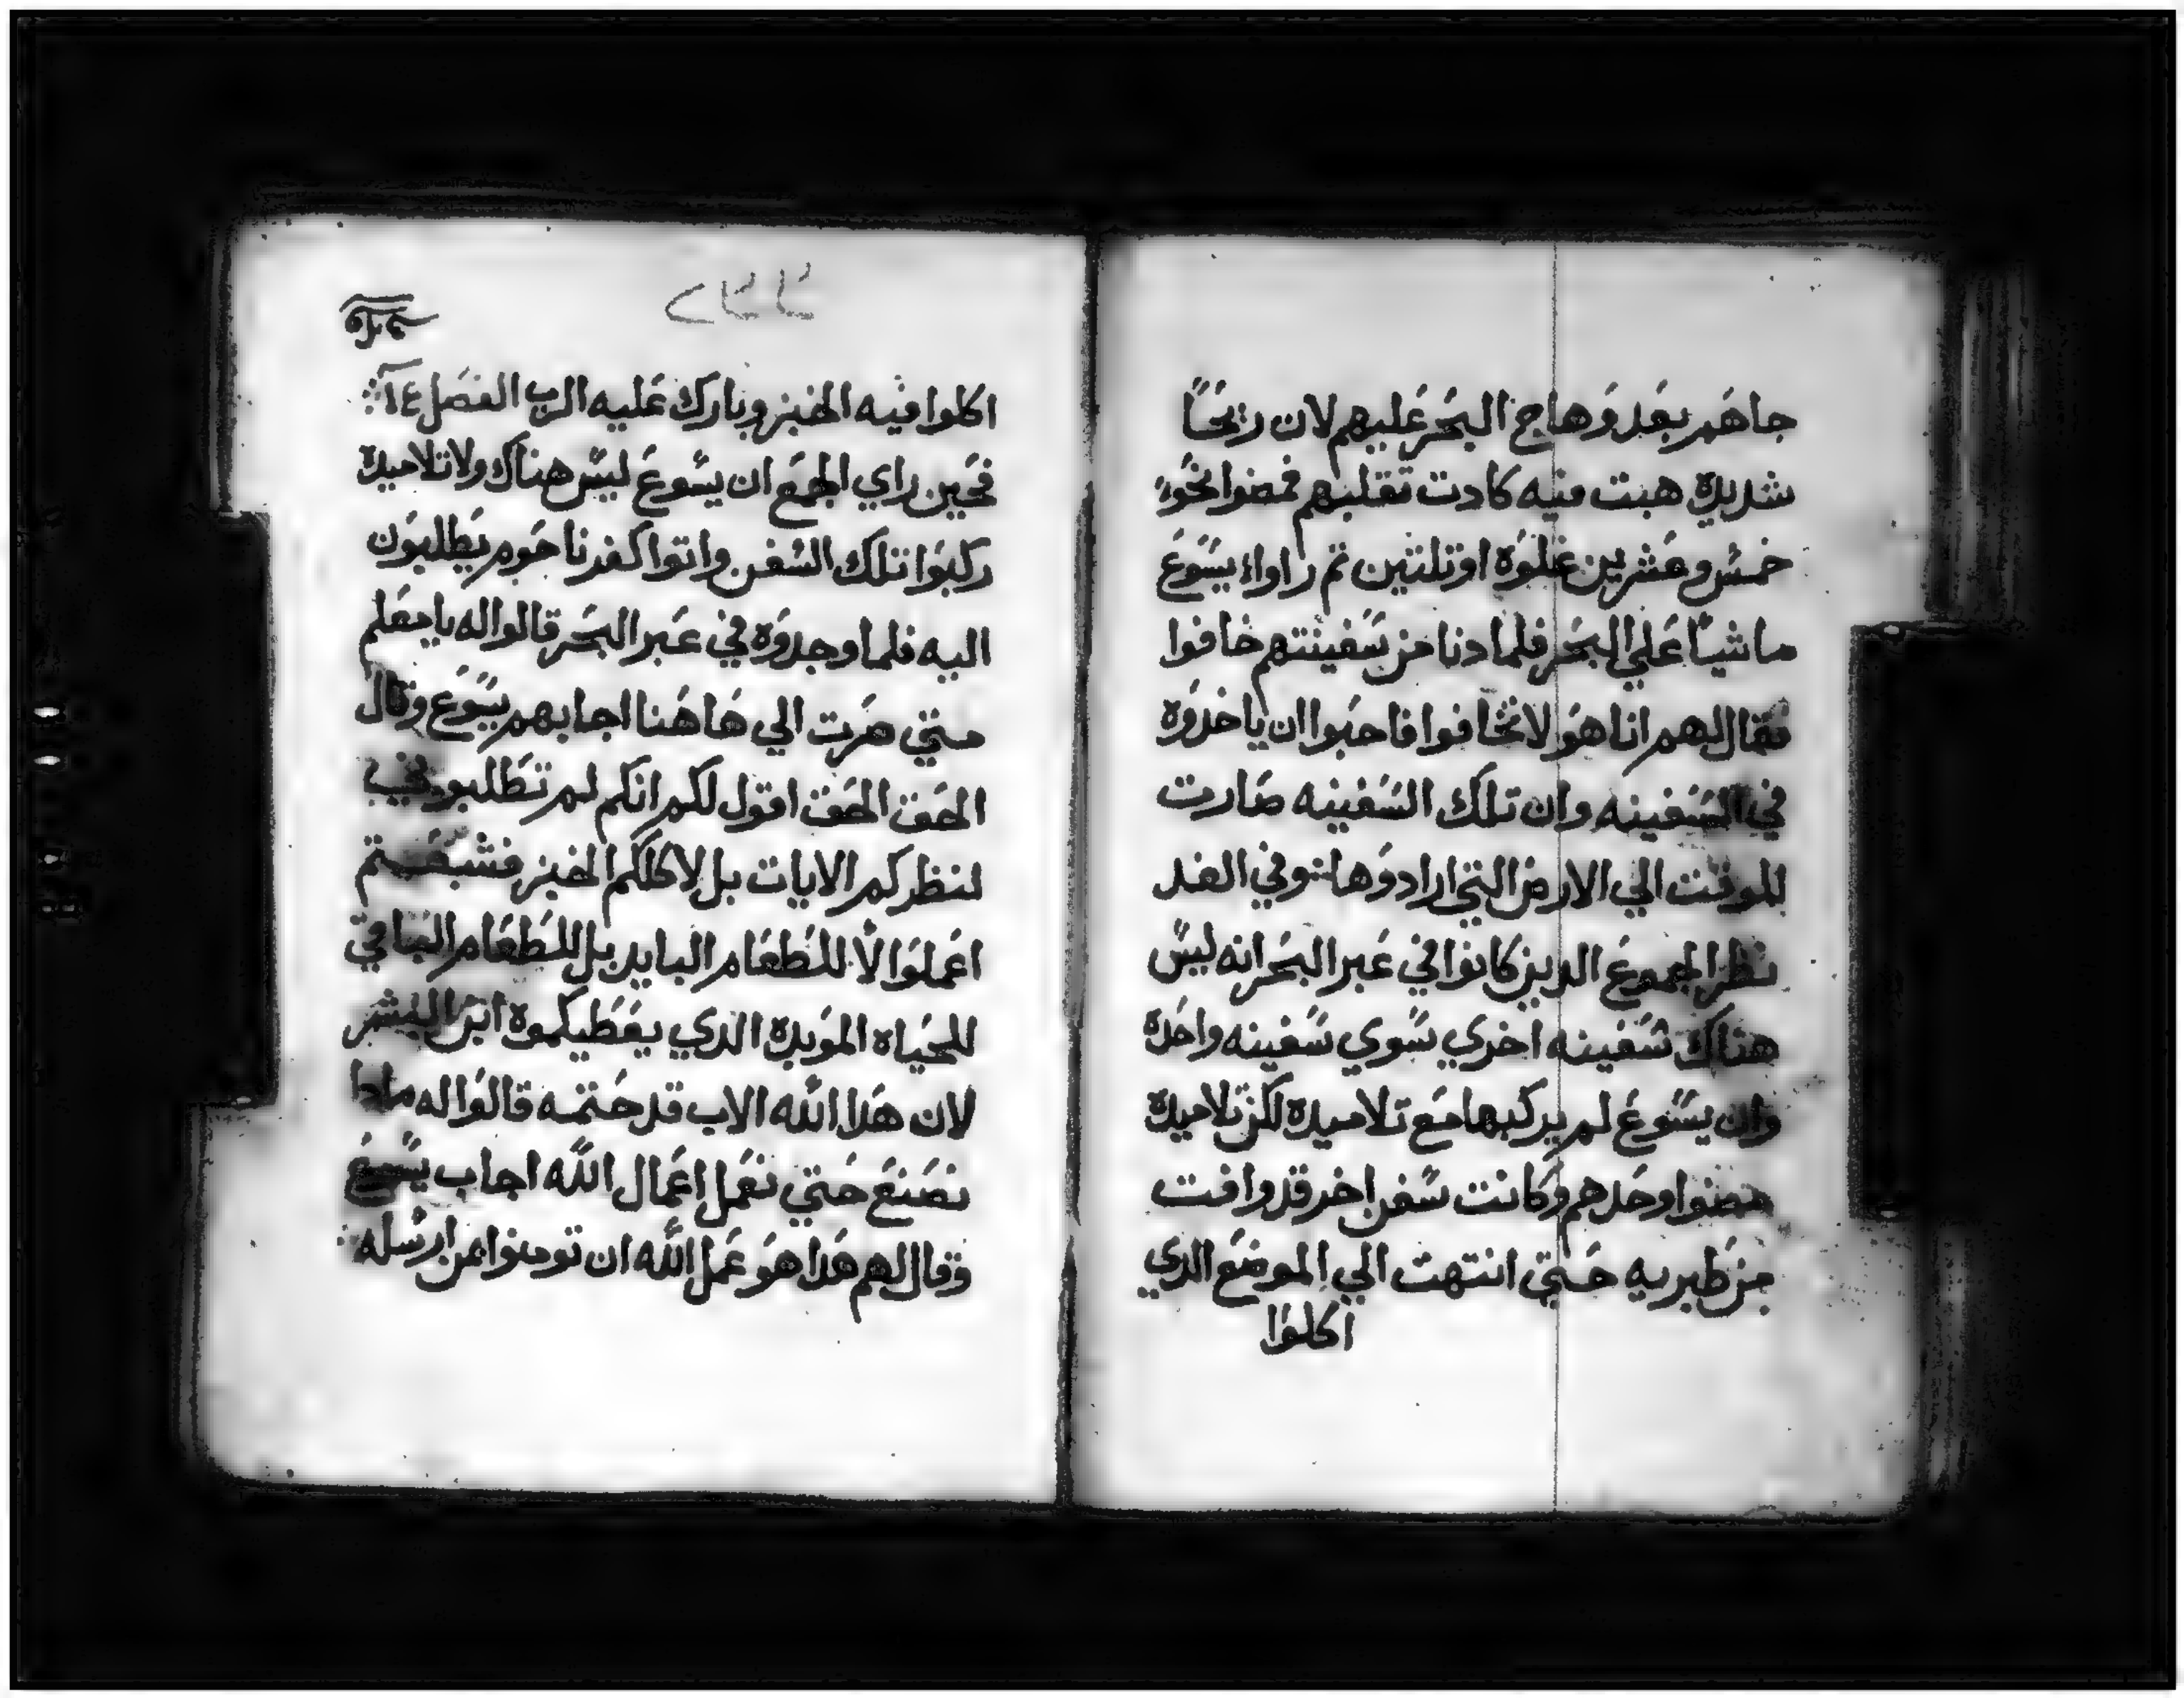 جاهم بعد وهاج البحر عليهم لان ريحًا
شديده هبت منيه كادت تقلبهم فمضوا نحو
خمس وعشرين غلوه او تلتين تم راوا يسوع
ماشيًا علي البحر فلما دنا من سفينتهم خافوا
فقال لهم انا هو لا تخافوا فاحبوا ان ياخدوه
في السفينه وان تلك السفينه صارت
للوقت الي الارض التي ارادوها وفي الغد
نظر الجموع الدين كانوا في عبر البحر انه ليس
هناك سفينه اخري سوي سفينه واحده
وان يسوع لم يركبها مع تلاميده لكن تلاميده
مضوا وحدهم وكانت سفن اخر قد وافت
من طبريه حتي انتهت الي الموضع الدي
اكلوا
اكلوا فيه الخبز وبارك عليه الرب الفصل ١٤
فحين راي الجمع ان يسوع ليس هناك ولا تلاميده
ركبوا تلك السفن واتوا كفرناحوم يطلبون
اليه فلما وجدوه في عبر البحر قالوا له يا معلم
متي صرت الي هاهنا اجابهم يسوع وقال
الحق الحق اقول لكم انكم لم تطلبوني
لنظركم الايات بل لاكلكم الخبز فشبعتم
اعملوا لا للطعام البايد بل للطعام الباقي
للحياه الموبده الدي يعطيكموه ابن البشر
لان هدا الله الاب قد ختمه قالوا له مادا
نصنع حتي نعمل اعمال الله اجاب يسوع
وقال لهم هدا هو عمل الله ان تومنوا بمن ارسله